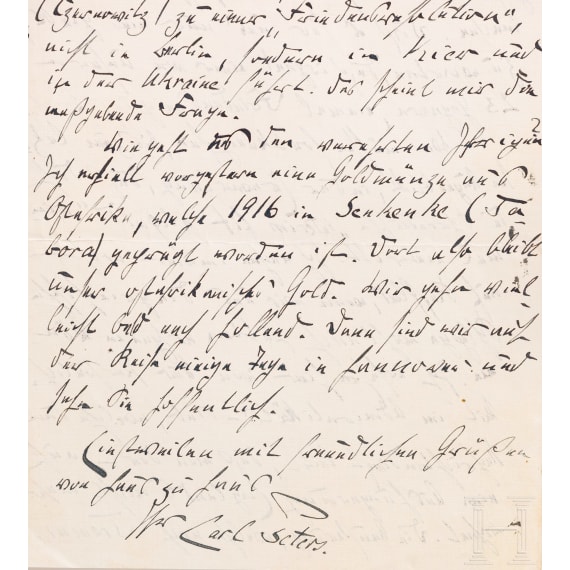 (Czernowitz) zu einer „Friedensresolution“,
nicht in Berlin, sondern in Kiew und
in der Ukraine führt. das scheint mir die
maßgebende Frage.
Wie geht es den verehrten Ihrigen?
Ich erhielt vorgestern eine Goldmünze aus
Ostafrika, welche 1916 in Senkenke (Ta-
bora) geprägt worden ist. Dort also bleibt
unser ostafrikanisches Gold. Wir gehn viel
leicht bald nach Holland. Dann sind wir auf
der Reise einige Tage in Hannover und
sehn Sie hoffentlich.
Einstweilen mit freundlichen Grüßen
von Haus zu Haus
Ihr Carl Peters.